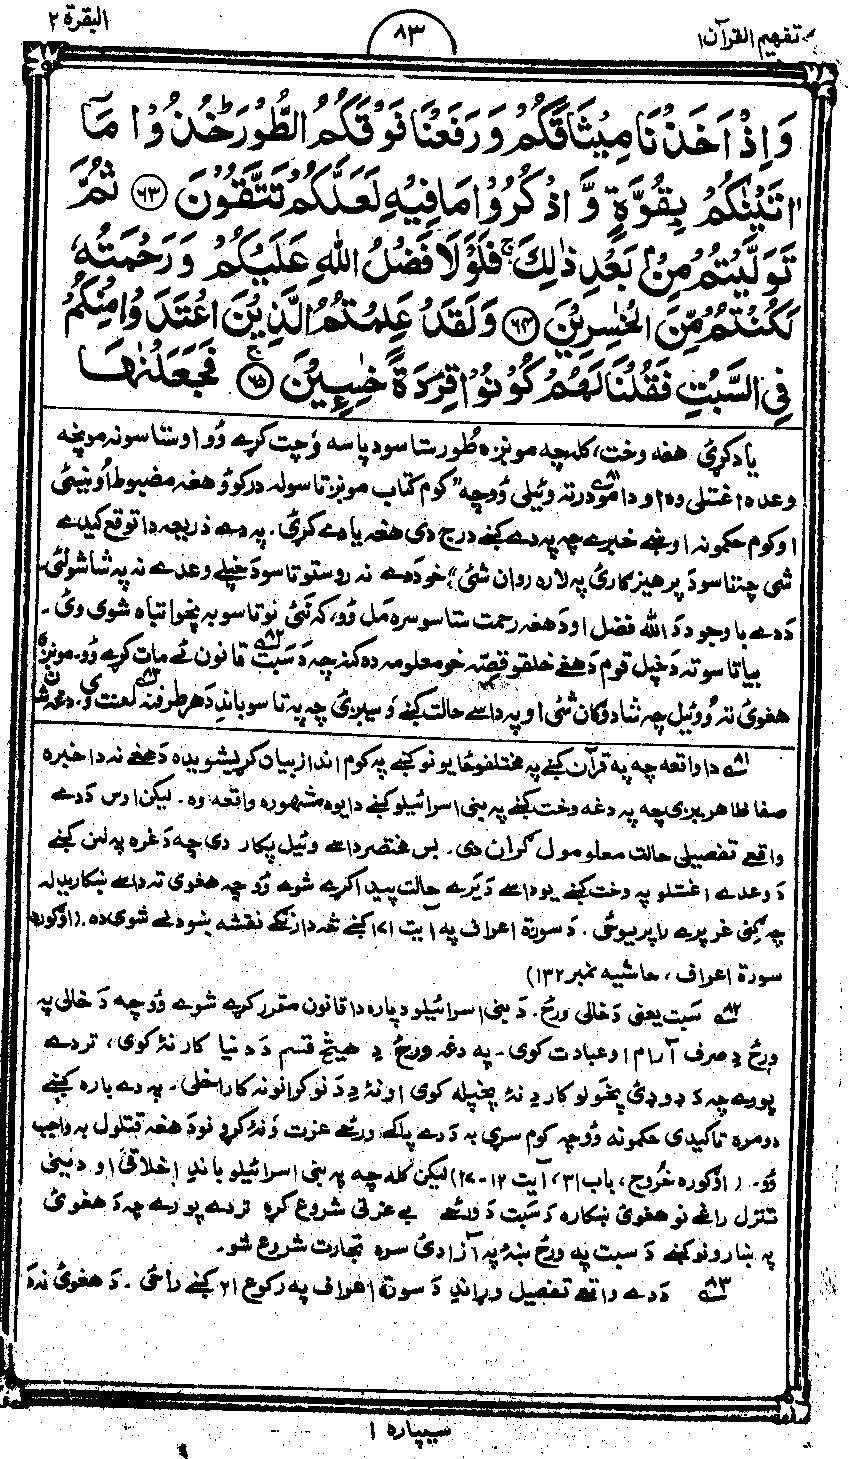 تفهیم القرآن ۱
۸۳
البقرة ۲
وَاِذْ اَخَذْنَا مِيْثَاقَكُمْ وَرَفَعْنَا فَوْقَكُمُ الطُّوْرَ ؕ خُذُوْا مَآ
اٰتَيْنٰكُمْ بِقُوَّةٍ وَّاذْكُرُوْا مَا فِيْهِ لَعَلَّكُمْ تَتَّقُوْنَ ﴿۶۳﴾ ثُمَّ
تَوَلَّيْتُمْ مِّنْۢ بَعْدِ ذٰلِكَ ۚ فَلَوْلَا فَضْلُ اللّٰهِ عَلَيْكُمْ وَرَحْمَتُهٗ
لَكُنْتُمْ مِّنَ الْخٰسِرِيْنَ ﴿۶۴﴾ وَلَقَدْ عَلِمْتُمُ الَّذِيْنَ اعْتَدَوْا مِنْكُمْ
فِي السَّبْتِ فَقُلْنَا لَهُمْ كُوْنُوْا قِرَدَةً خٰسِـِٕيْنَ ۚ ﴿۶۵﴾ فَجَعَلْنٰهَا
یاد کړئ هغه وخت، کله چه مونږه طُور ستاسو د پاسه وُچت کړے وُو او ستاسو نه مو پخه
وعده اغستلې وه او دا مو درته وئیلی وُو چه "کوم کتاب مونږ تاسو له درکوُو هغه مضبوط اُونیسئ
او کوم حکمونه او خبرے چه په دے کښے درج دی هغه یادے کړئ. په دے ذریعه دا توقع کیدے
شی چه تاسو د پرهیزګارئ په لاره روان شئ"؛ خو د دے نه روستو تاسو د خپلے وعدے نه په شا شولئ۔
د دے باوجود دَ الله فضل او دَ هغه رحمت ستاسو سره مل وُو، که نی نو تاسو به پخوا تباه شوی وئ.
بیا تاسو ته دَ خپل قوم دَ هغے خلقو قصّه خو معلومه ده کنه چه دَ سَبت ۸۲ قانون ئے مات کړے وُو. مونږ
هغوئ ته وُوئیل چه شادوګان شئ او په داسے حالت کښے وَسیږئ چه په تاسو باندِ دَ هر طرف نه لعنت وی۸۳.
۸۱ دا واقعه چه په قرآن کښے په مختلفو ځایونو کښے په کوم انداز بیان کړیشویده دَ هغے نه دا خبره
صفا ظاهریږی چه په دغه وخت کښے په بنی اسرائیلو کښے دا یوه مشهوره واقعه وه. لیکن اوس دَ دے
واقعے تفصیلی حالت معلومول ګران دی. بس مختصر داسے وئیل پکار دی چه دَ غره په لمن کښے
دَ وعدے اغستلو په وخت کښے یو داسے دَ یَرے حالت پیدا کړے شوے وُو چه هغوی ته داسے ښکاریدله
چه ګنی غر پرے راپریوځی. دَ سورة اعراف په آیت ۱۷۱ کښے څه دا رنګے نقشه ښودلے شوی ده. (اوګوره
سورة اعراف، حاشیه نمبر ۱۳۲)
۸۲ سَبت یعنی دَ خالی ورځ. دَ بنی اسرائیلو دپاره دا قانون مقرر کړے شوے وُو چه دَ خالی په
ورځ دِ صرف آرام او عبادت کوی. په دغه ورځ دِ هیڅ قسم دَ دنیا کار نهٔ کوی، تردے
پورے چه دَ ډوډئ پخولو کار دِ نهٔ پخپله کوی او نهٔ دِ دَ نوکرانو نه کار اخلی. په دے باره کښے
دومره تاکیدی حکمونه وُو چه کوم سړی به دَ دے پاکے ورځے عزت وَنهٔ کړو نو دَ هغه قتلول به واجب
وُو. (اوګوره خُروج، باب ۳۱، آیت ۱۲-۱۷) لیکن کله چه په بنی اسرائیلو باندِ اخلاقی او دینی
تنزل راغے نو هغوئ ښکاره دَ سَبت دَ ورځے بے عزتی شروع کړه تردے پورے چه دَ هغوئ
په ښارونو کښے دَ سبت په ورځ ښهٔ په آزادئ سره تجارت شروع شو.
۸۳ دَ دے واقعے تفصیل وړاندِ دَ سورة اعراف په رکوع ۲۱ کښے راځی. دَ هغوئ نه دَ
سیپاره ۱